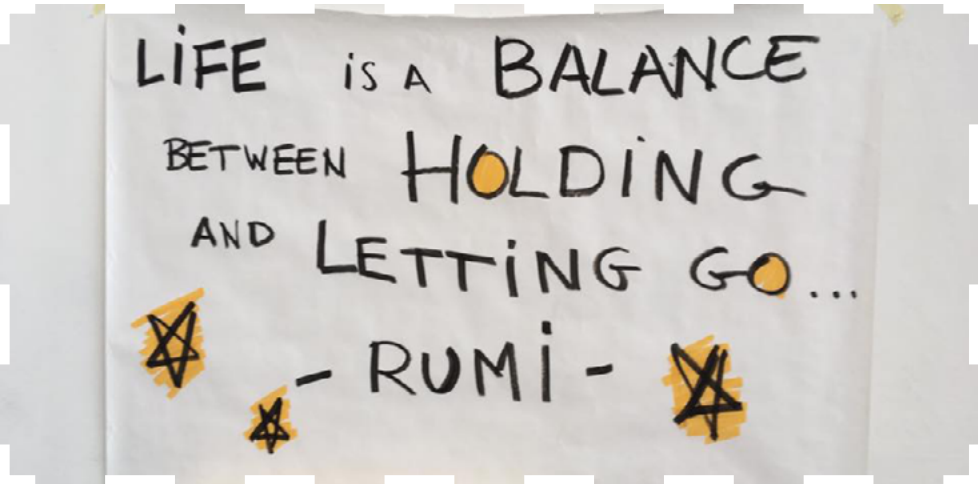 LiFE iS A BALANCE
BETWEEN HOLDiNG
AND LETTiNG GO...
- RUMi -